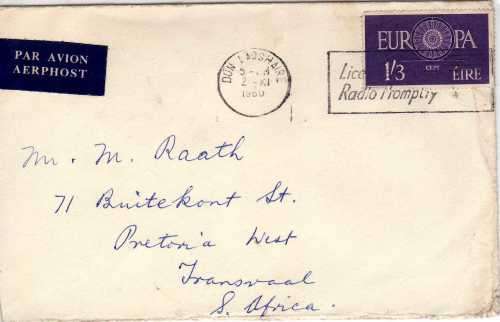 PAR AVION
AERPHOST
DÚN LAOGHAIRE
2 XI
1960
EUROPA
1/3 CEPT ÉIRE
Radio Promptly
Mr. M. Raath
71 Buitekant St.
Pretoria West
Transvaal
S. Africa.